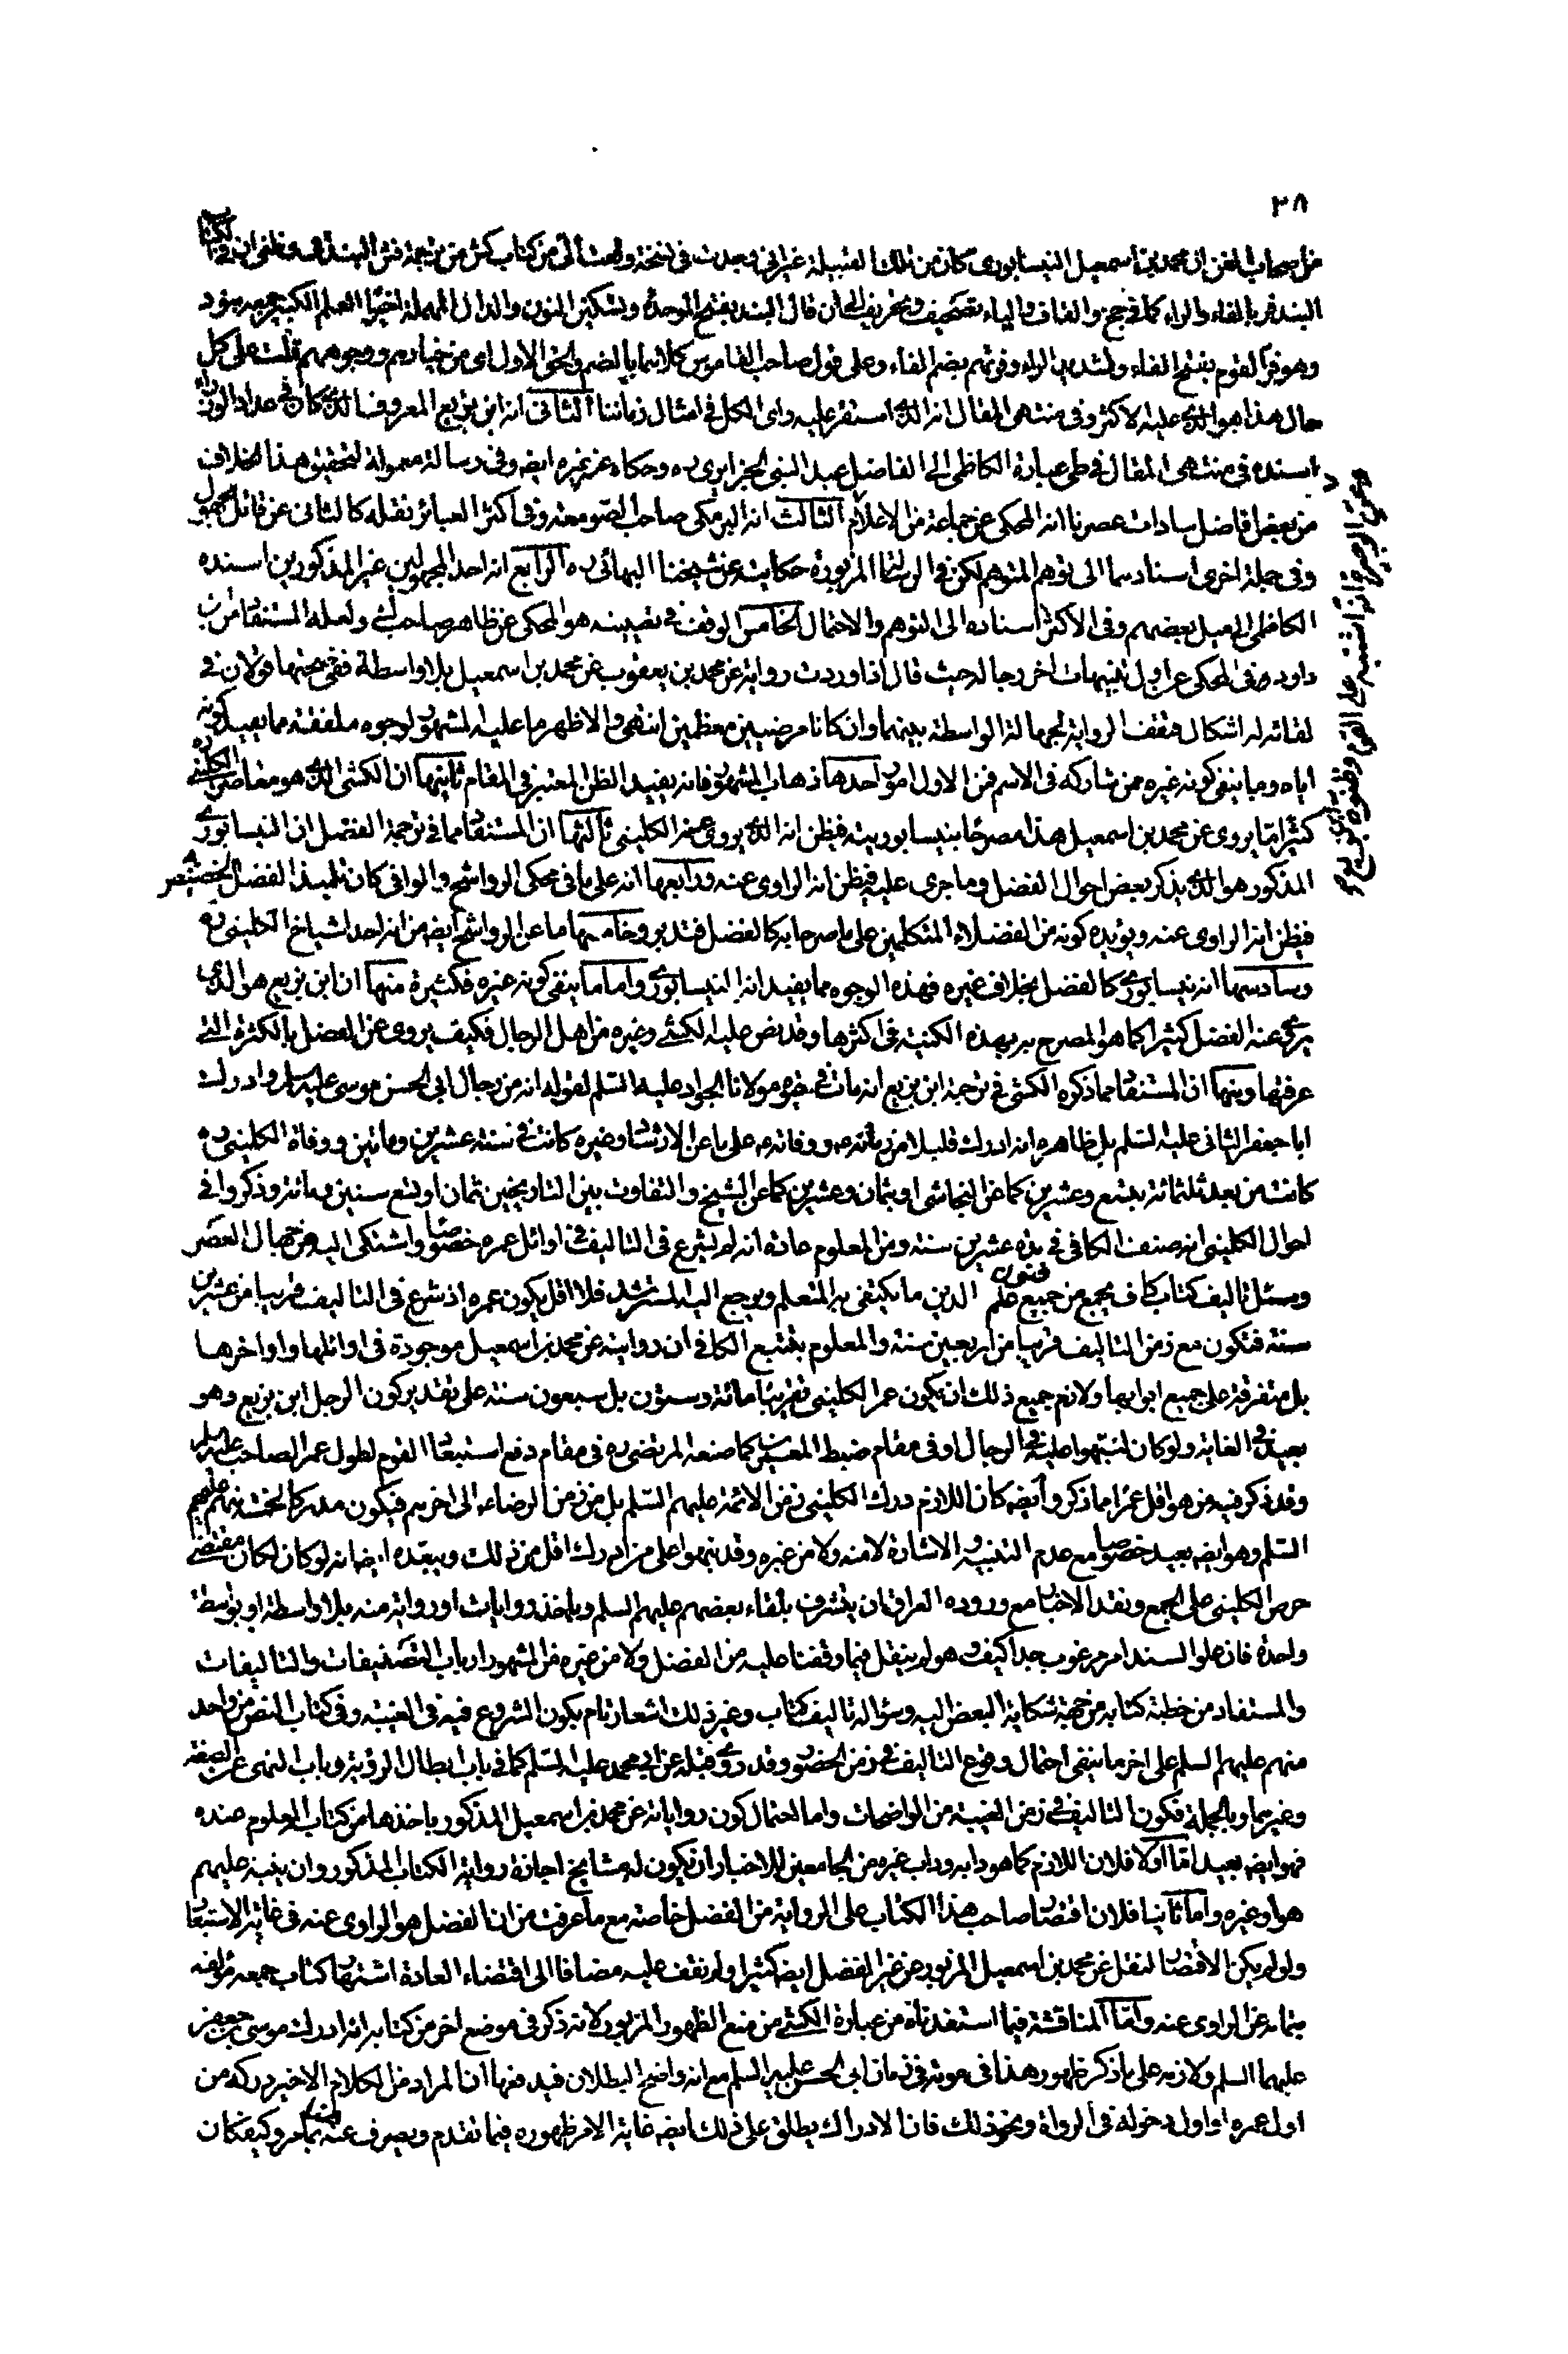 ٣٨
من صحاب الفن ان محمد بن اسمعيل النيسابورى كان من تلك القبيلة غير انى وجدت فى نسخة وقعت الى من كتاب كش من ترجمة فش البندقى وظنى ان
البندفر بالفاء والراء كما فى جخ والقاف والياء تصحيف وتحريف الى ان قال البند بفتح الموحدة وتسكين النون والدال المهملة اخيرا العلم الكبير جمعه بنود
وهو فر القوم بفتح الفاء وتشديد الراء وفرتهم بضم الفاء وعلى قول صاحب القاموس كلاهما بالضم والحق الاول اى من خيارهم ووجوههم قلت على كل
حال هذا هو الذى عليه الاكثر وفى منتهى المقال انه الذى استقر عليه راى الكل فى امثال زماننا الثانى انه ابن بزيع المعروف الذى كان فى عداد الوزراء
اسنده فى منتهى المقال فى طى عبارة الكاظمى الى الفاضل عبد النبى الجزايرى ره وحكاه عن غيره ايضه وفى رسالة معمولة لتحقيق هذا الخلاف
من بعض افاضل سادات عصرنا انه المحكى عن جماعة من الاعلام الثالث انه البرمكى صاحب الصومعة وفى اكثر العبائر نقله كالثانى عن قائل مجهول
وفى جملة اخرى اسنادهما الى توهم المتوهم لكن فى الرسالة المزبورة حكايته عن شيخنا البهائى ره الرابع انه احد المجهولين غير المذكورين اسنده
الكاظمى الى ميل بعضهم وفى الاكثر اسناده الى التوهم والاحتمال الخامس الوقف فى تعيينه هو المحكى عن ظاهر صاحب ئى ولعله المستفاد من ابن
داود ره فى المحكى عن اول تنبيهات اخر رجاله حيث قال اذا وردت رواية عن محمد بن يعقوب عن محمد بن اسمعيل بلا واسطة ففى صحتها قولان فى
لقائه له اشكال فتقف الرواية لجهالة الواسطة بينهما وان كانا مرضيين معظمين انتهى والاظهر ما عليه المشهور لوجوه ملفقة مما يفيد كونه
اياه وما ينفى كونه غيره ممن شاركه فى الاسم فمن الاول امور احدها ذهاب المشهور فانه يفيد الظن المعتبر فى المقام ثانيها ان الكشى الذى هو معاصر الكلينى ره
كثيرا ما يروى عن محمد بن اسمعيل هذا مصرحا بنيسابوريته فيظن انه الذى يروى عنه الكلينى ثالثها ان المستفاد مما فى ترجمة الفضل ان النيسابورى
المذكور هو الذى يذكر بعض احوال الفضل وما جرى عليه فيظن انه الراوى عنه ورابعها انه على ما فى محكى الرواشح والوافى كان تلميذ الفضل الخصيص به
فيظن انه الراوى عنه ويؤيده كونه من الفضلاء المتكلمين على ما صرحا به كالفضل فتدبر وخامسها ما عن الرواشح ايضه من انه احد اشياخ الكلينى ره
وسادسها انه نيسابورى كالفضل بخلاف غيره فهذه الوجوه مما يفيد انه النيسابورى واما ما ينفى كونه غيره فكثيرة منها ان ابن بزيع هو الذى
يروى عنه الفضل كثيرا كما هو المصرح به بهذه الكنية فى اكثرها وقد نص عليه الكشى وغيره من اهل الرجال فكيف يروى عن الفضل بالكثرة التى
عرفتها ومنها ان المستفاد مما ذكره الكشى فى ترجمة ابن بزيع انه مات فى حيوة مولانا الجواد عليه السلم لقوله انه من رجال ابى الحسن موسى عليه السلم وادرك
ابا جعفر الثانى عليه السلم بل ظاهره انه ادرك قليلا من زمانه ع ووفاته ع على ما عن الارشاد وغيره كانت فى سنة عشرين وماتين ووفاة الكلينى ره
كانت من بعد ثلثمائة بتسع وعشرين كما عن النجاشى او بثمان وعشرين كما عن الشيخ والتفاوت بين التاريخين ثمان او تسع سنين ومائة وذكروا فى
احوال الكلينى انه صنف الكافى فى مدة عشرين سنة ومن المعلوم عادة انه لم يشرع فى التاليف فى اوائل عمره خصوصا واشتكى اليه من جهال العصر
وسئل تاليف كتاب كاف يجمع من جميع فنون علم الدين ما يكتفى به المتعلم ويرجع اليه المسترشد فلا اقل يكون عمره اذ شرع فى التاليف قريبا من عشرين
سنة فتكون مع زمن التاليف قريبا من اربعين سنة والمعلوم بتتبع الكافى ان روايته عن محمد بن اسمعيل موجودة فى اوائلها واواخرها
بل متفرقة على جميع ابوابها ولازم جميع ذلك ان يكون عمر الكلينى تقريبا مائة وستون بل سبعون سنة على تقدير كون الرجل ابن بزيع وهو
بعيد فى الغاية ولو كان لنبهوا عليه فى الرجال او فى مقام ضبط المعمرين كما صنعه المرتضى ره فى مقام دفع استبعاد القوم لطول عمر الصاحب عليه السلم
وقد ذكر فيه من هو اقل عمرا مما ذكر وايضه كان اللازم درك الكلينى زمن الائمة عليهم السلم بل من زمن الرضا ع الى اخرهم فيكون مدركا لخمسة منهم عليهم
السلم وهو ايضه بعيد خصوصا مع عدم التنبيه والاشارة لا منه ولا من غيره وقد نبهوا على من ادرك اقل من ذلك ويبعده ايضا انه لو كان لكان مقتضى
حرص الكلينى على الجمع ونقد الاخبار مع وروده العراق ان يتشرف بلقاء بعضهم عليهم السلم وياخذ روايات او رواية منه بلا واسطة او بواسطة
واحدة فان علو السند امر مرغوب جدا كيف وهو لم ينقل فيما وقفنا عليه من الفضل ولا من غيره من المشهور ارباب التصنيفات والتاليفات
والمستفاد من خطبة كتابه من جهة شكاية البعض اليه وسؤاله تاليف كتاب وغير ذلك اشعار تام بكون الشروع فيه فى الغيبة وفى كتاب النص من واحد
منهم عليهم السلم على اخر ما ينفى احتمال وقوع التاليف فى زمن الحضور وقد روى قبله عن ابى محمد عليه السلم كما فى باب ابطال الرؤية وباب النهى عن الصفة
وغيرهما وبالجملة فكون التاليف فى زمن الغيبة من الواضحات واما احتمال كون رواياته عن محمد بن اسمعيل المذكور باخذها من كتاب المعلوم عنده
فهو ايضه بعيد اما اولا فلان اللازم كما هو دابه وداب غيره من الجامعين للاخبار ان يكون له مشايخ اجازة رواية الكتاب المذكور وان ينبه عليهم
هو او غيره واما ثانيا فلان اقتصار صاحب هذا الكتاب على الرواية من الفضل خاصة مع ما عرفت من ان الفضل هو الراوى عنه فى غاية الاستبعاد
ولو لم يكن الاقتصار لنقل عن محمد بن اسمعيل المزبور عن غير الفضل ايضه كثيرا ولم نقف عليه مضافا الى اقتضاء العادة اشتهار كتاب جمعه مؤلفه
بتمامه عن الراوى عنه واما المناقشة فيما استفدناه من عبارة الكشى من منع الظهور المزبور لانه ذكر فى موضع اخر من كتابه انه ادرك موسى بن جعفر
عليهما السلم ولازمه على ما ذكر ظهور هذا فى موته فى زمان ابى الحسن عليه السلم مع انه واضح البطلان فيدفعها ان المراد من الكلام الاخير دركه من
اول عمره او اول دخوله فى الرواة ونحو ذلك فان الادراك يطلق على ذلك ايضه غاية الامر ظهوره فيما تقدم ويصرف عنه بما مر وكيف كان